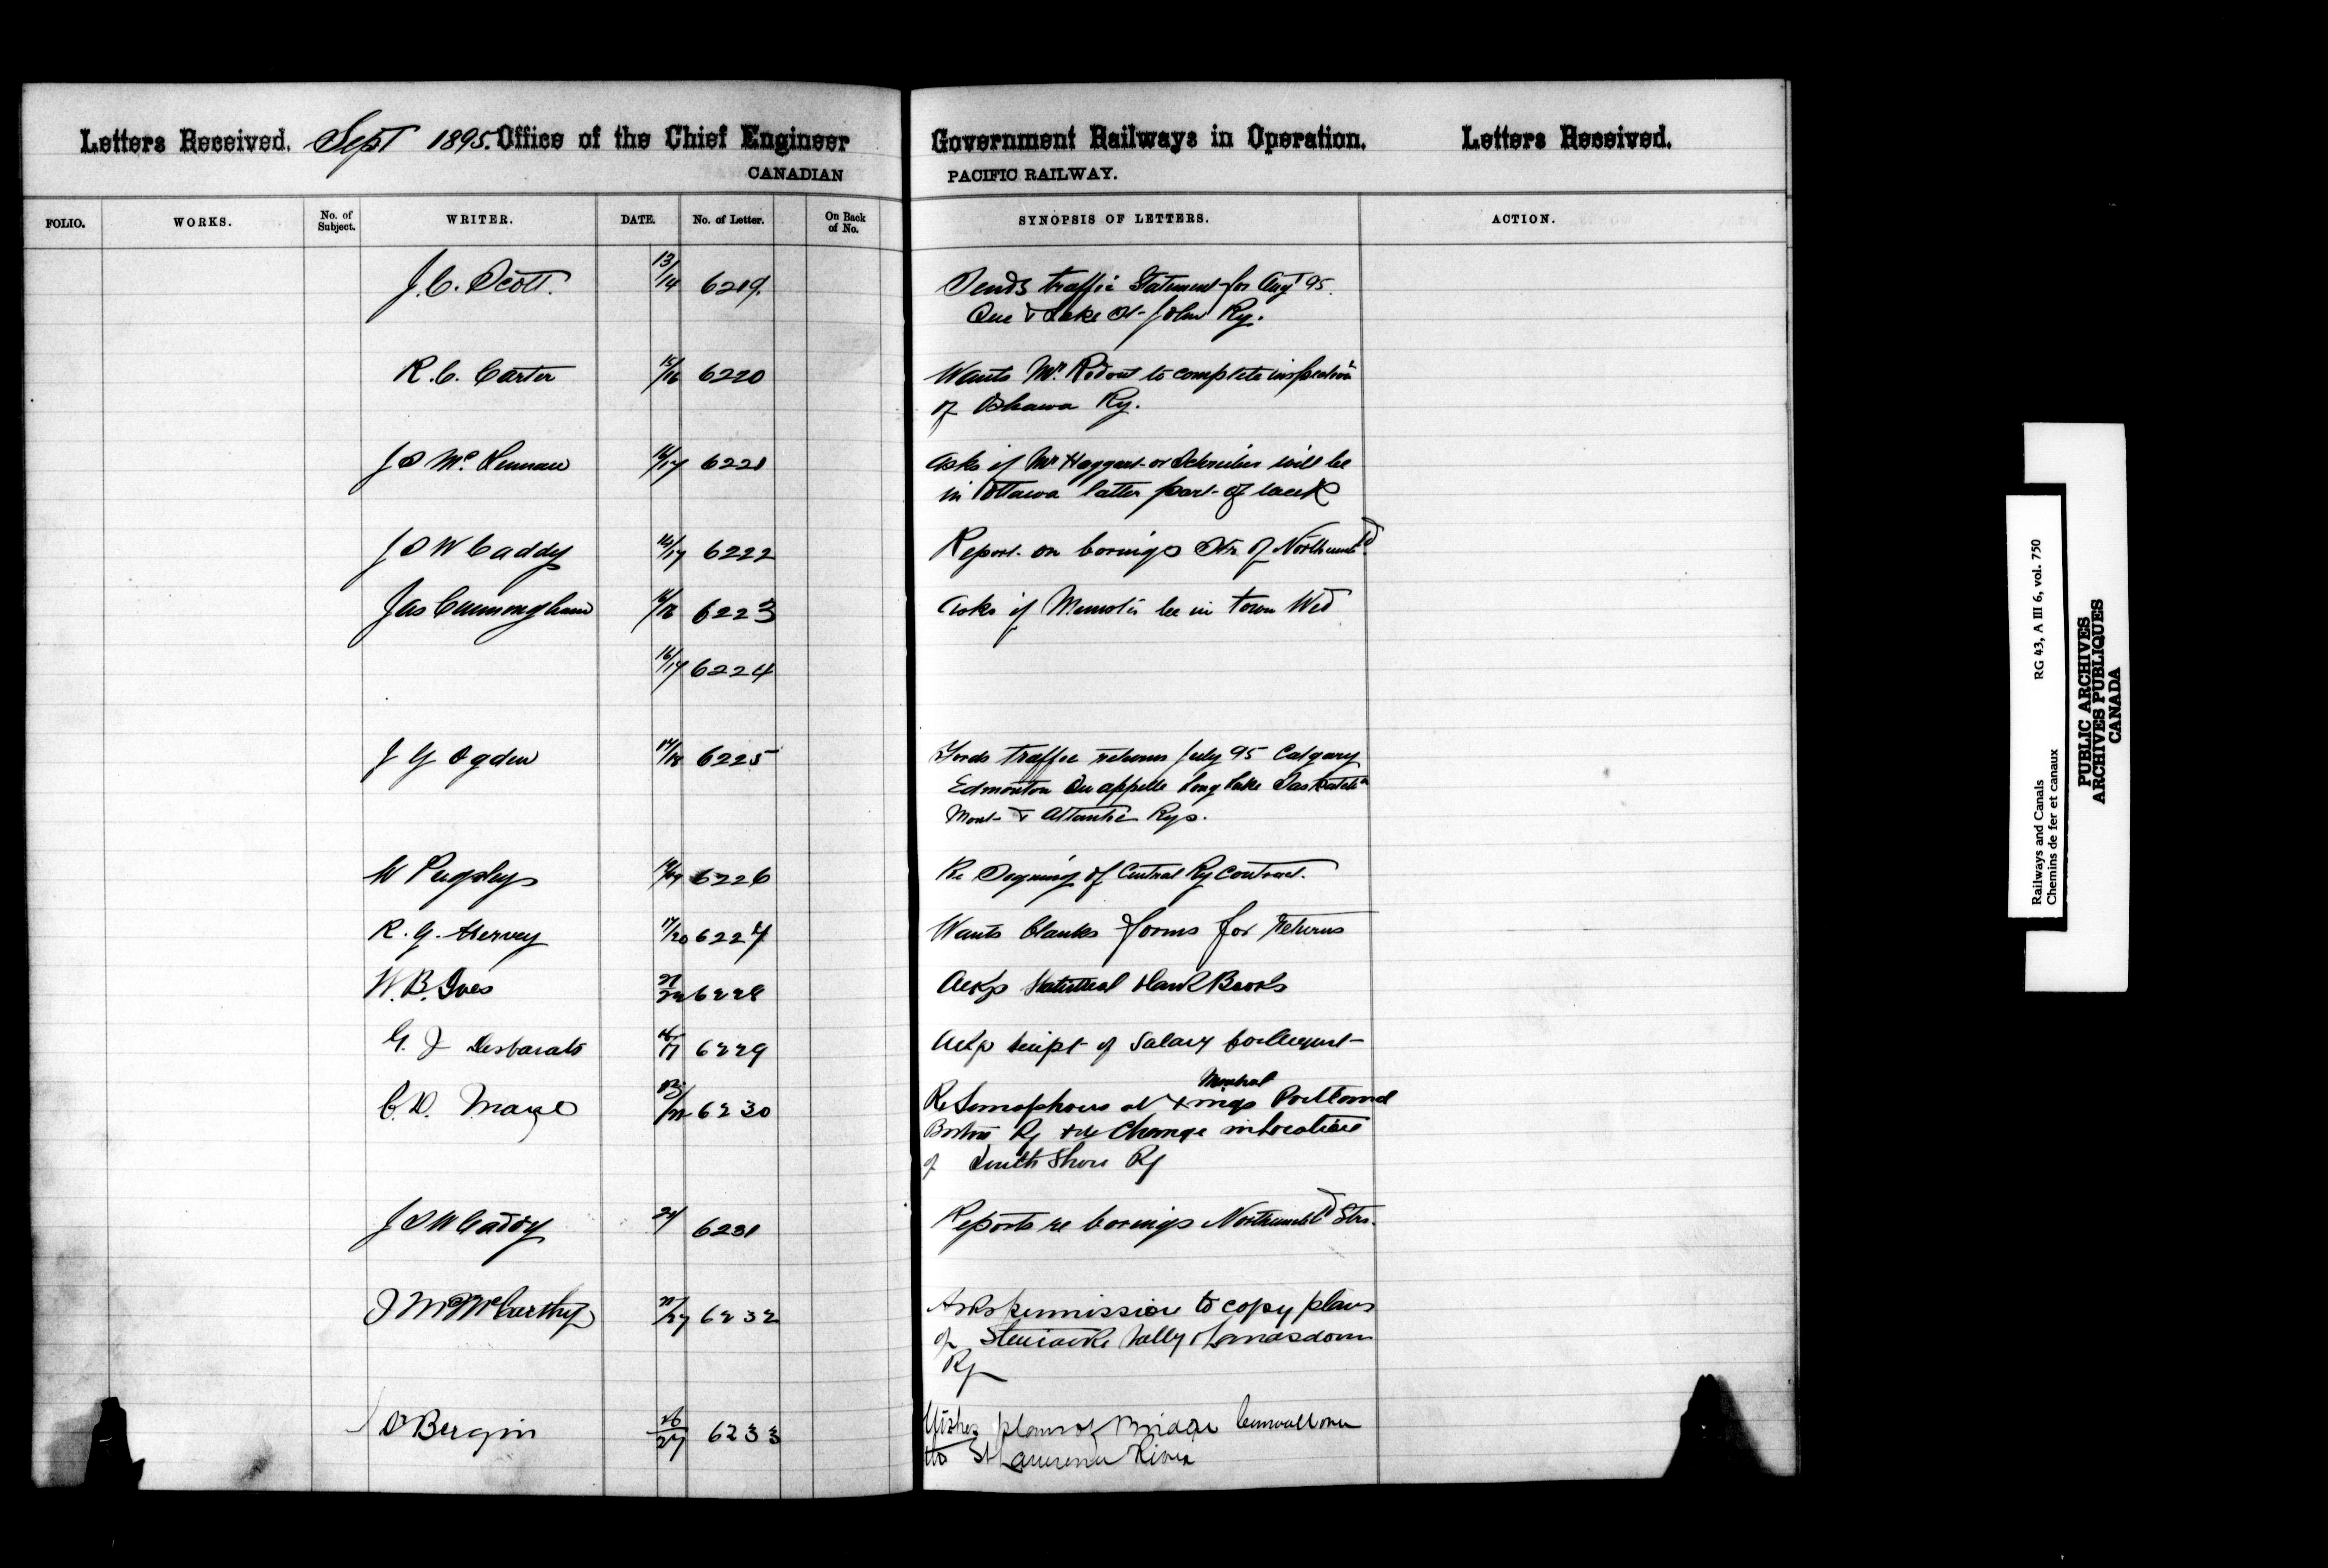 Letters Received. Sept 1895. Office of the Chief Engineer Government Railways in Operation. Letters Received.
CANADIAN PACIFIC RAILWAY.
FOLIO. WORKS. No. of Subject. WRITER. DATE. No. of Letter. On Back of No. SYNOPSIS OF LETTERS. ACTION.
J.C. Scott. 13/14 6219. Sends traffic Statement for Augt 95.
Que & Lake St John Ry.
R.C. Carter 15/16 6220 Wants Mr. Ridout to complete inspection
of Oshawa Ry.
J S Mc Lennan 16/17 6221 Asks if Mr Haggart or Schreiber will be
in Ottawa latter part of week
J S W Caddy 16/17 6222 Report on borings Str of Northumbld
Jas Cunningham 16/18 6223 Asks if be in town Wed
16/17 6224
J G Ogden 17/18 6225 traffic returns July 95 Calgary
Edmonton Qu appelle Long Lake Saskatchn
Mont & Atlantic Rys.
W Pugsley 6226 Re Signing of Central Ry Contract.
R. G. Hervey 17/20 6227 Wants blanks forms for returns
W. B. Ives 6228 Ackgs Hand Books
G. J Desbarats 16/17 6229 Ackgs receipt of Salary for August
C. D. 6230 Re Semaphores at Montreal Portland
Boston Ry & re Change in location
of South Shore Ry
J S W Caddy 24/ 6231 Reports re borings Northumbld Str.
J McMCarthy 6232 Asks permission to copy plans
of Stewiacke Vally & Lansdown
Ry
Dr Bergin 26/27 6233 Wishes plan of Bridge Cornwall over
the St Lawrence River
Railways and Canals RG 43, A III 6, vol. 750
Chemins de fer et canaux
PUBLIC ARCHIVES
ARCHIVES PUBLIQUES
CANADA